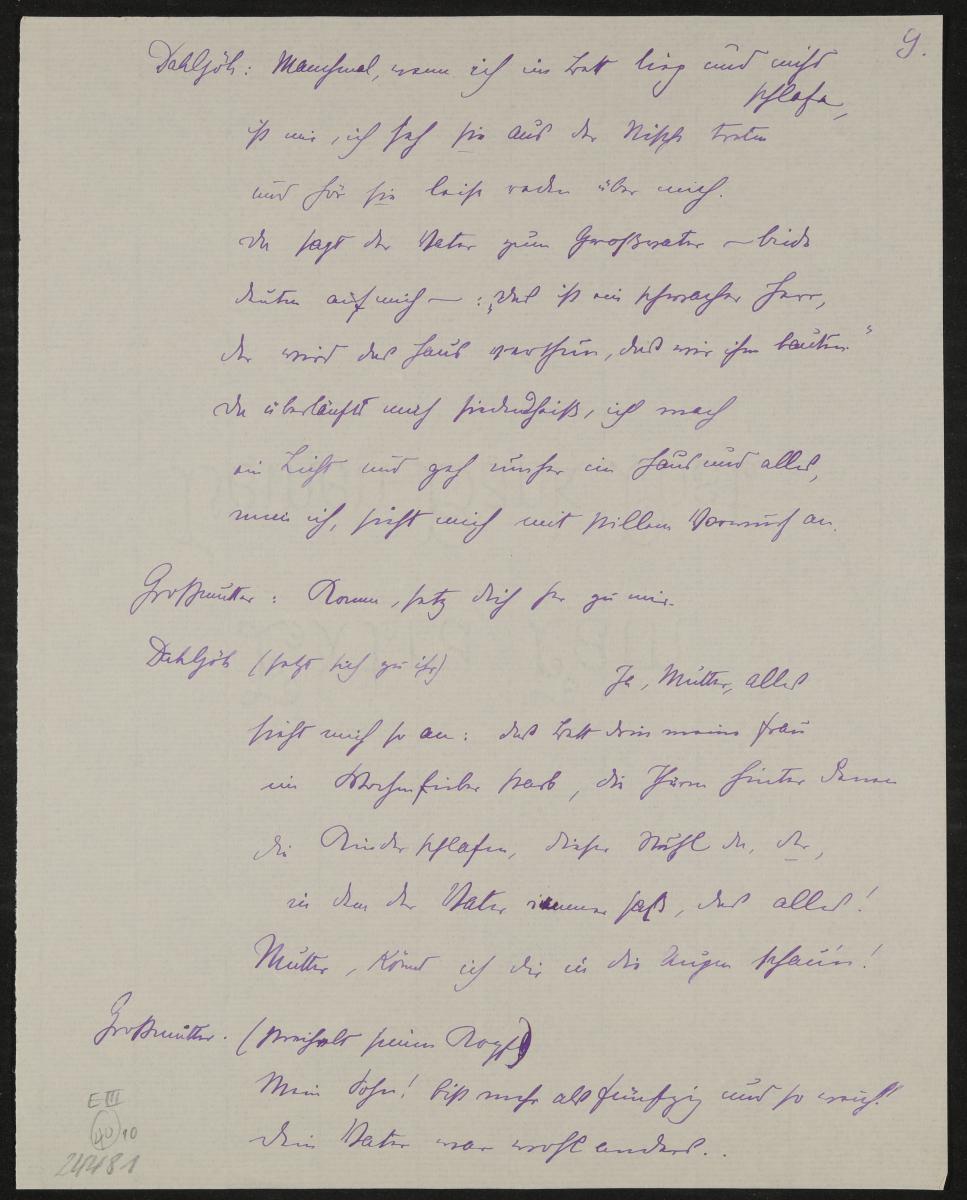 9.
Dahljöh: Manchmal, wenn ich im Bett lieg und nicht
schlafe,
ist mir, ich seh sie aus der Nische treten
und hör sie leise reden über mich.
Da sagt der Vater zum Grossvater – beide
deuten auf mich – : „Das ist ein schwacher Herr,
der wird das Haus verthun, das wir ihm bauten."
Da überläufts mich siedendheiß, ich mach
ein Licht und geh umher im Haus und alles,
mein ich, sieht mich mit stillem Vorwurf an.
Großmutter: Komm, setz dich her zu mir.
Dahljöh (setzt sich zu ihr) Ja, Mutter, alles
sieht mich so an: das Bett drin meine Frau
im Wochenfieber starb, die Thüren hinter denen
die Kinder schlafen, dieser Stuhl da, der,
in dem der Vater immer saß, das alles!
Mutter, könnt ich dir in die Augen schaun!
Großmutter. (streichelt seinen Kopf)
Mein Sohn! bist mehr als fünfzig und so weich!
Dein Vater war wohl anders..
E III
40 10
24481